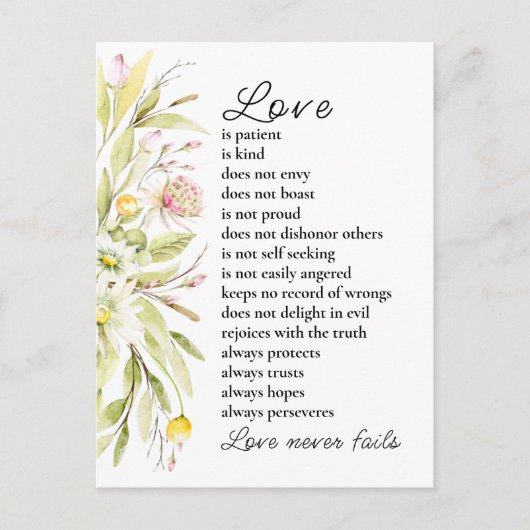 Love
is patient
is kind
does not envy
does not boast
is not proud
does not dishonor others
is not self seeking
is not easily angered
keeps no record of wrongs
does not delight in evil
rejoices with the truth
always protects
always trusts
always hopes
always perseveres
Love never fails